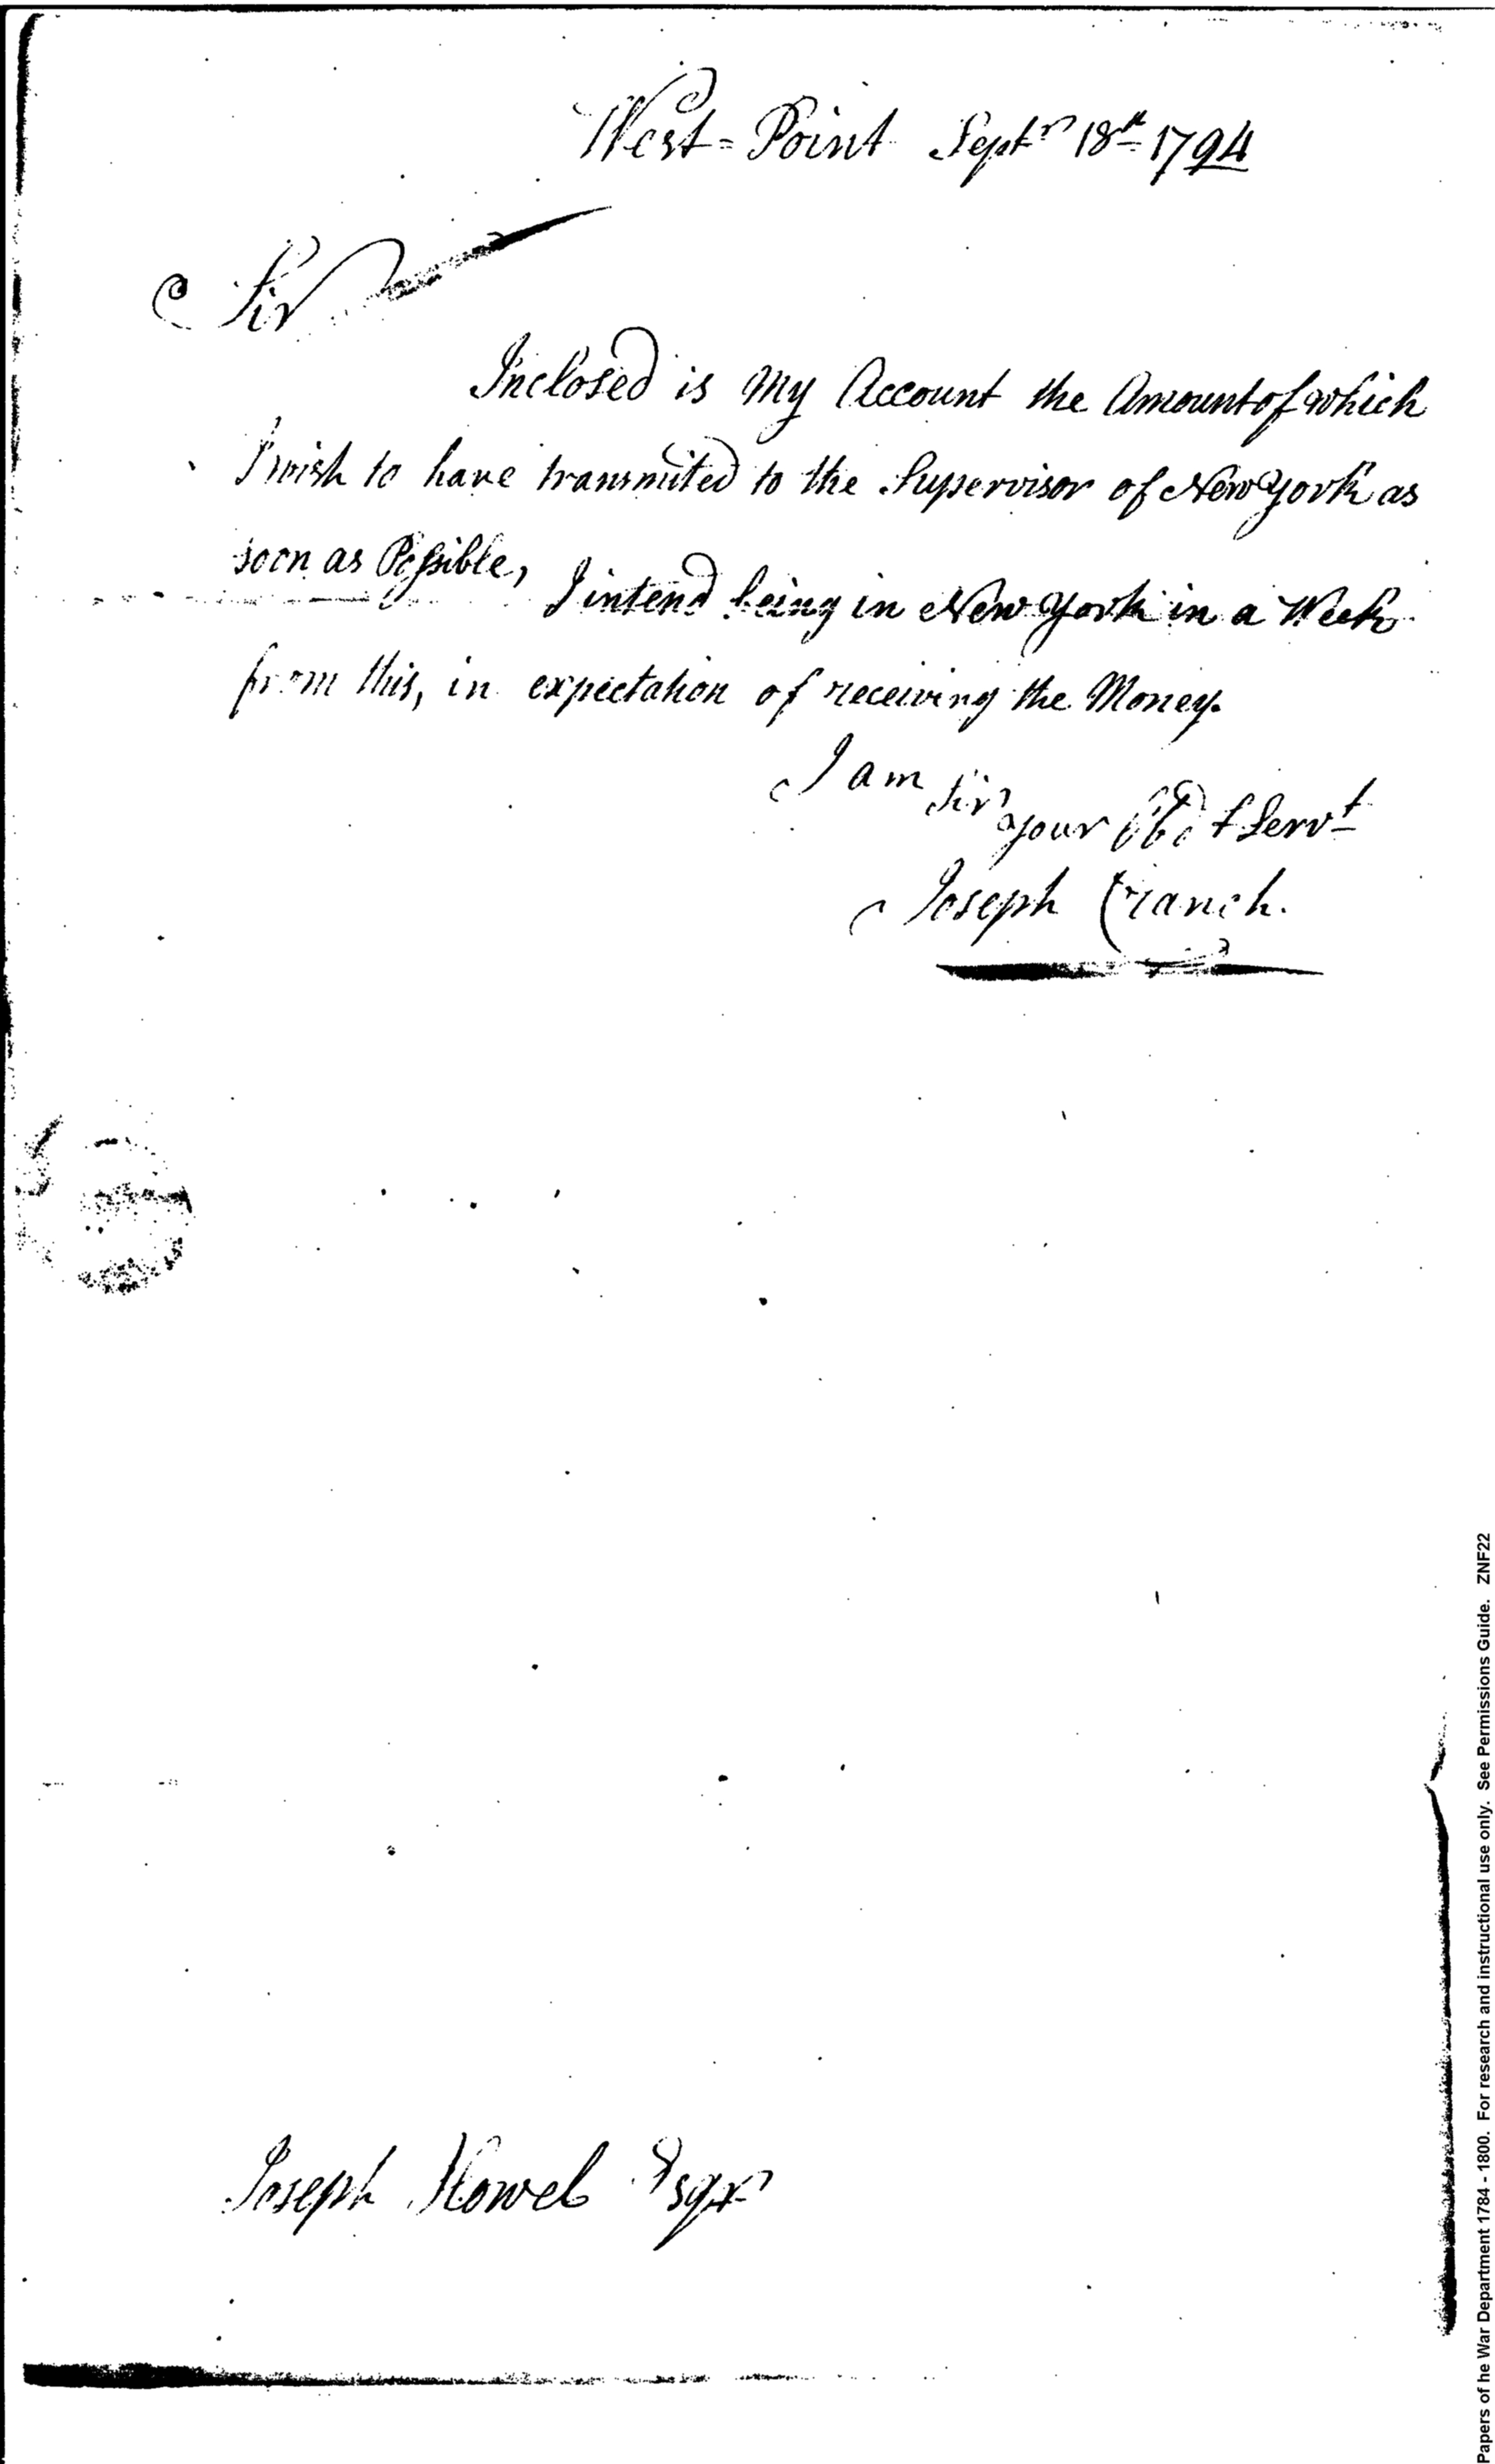 West-Point Septr 18th 1794
Sir
Inclosed is My Account the Amount of which
I wish to have transmited to the Supervisor of New York as
soon as Possible, I intend being in New York in a Week
from this, in expectation of receiving the Money.
I am Sir
your Obdt Servt
Joseph Cranch.
Joseph Howel Esqr
Papers of he War Department 1784 - 1800. For research and instructional use only. See Permissions Guide. ZNF22